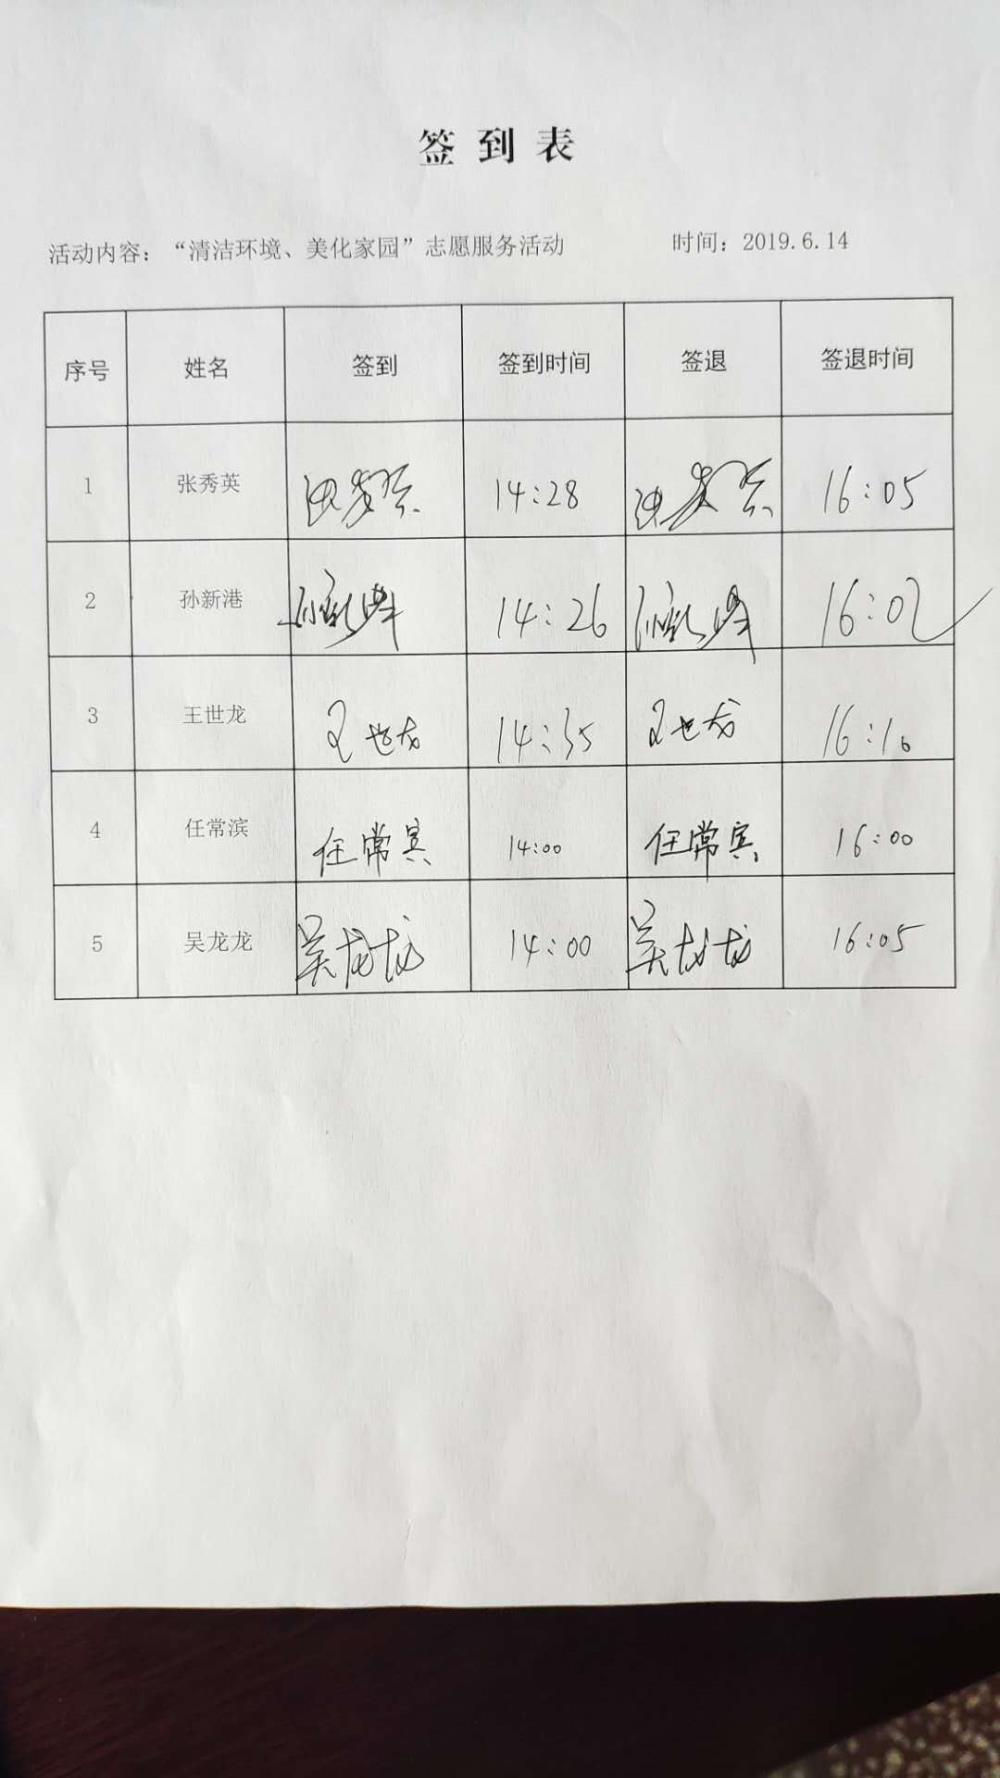 签到表
活动内容：“清洁环境、美化家园”志愿服务活动 时间：2019.6.14
序号 姓名 签到 签到时间 签退 签退时间
1 张秀英 张秀英 14:28 张秀英 16:05
2 孙新港 孙新港 14:26 孙新港 16:02
3 王世龙 王世龙 14:35 王世龙 16:10
4 任常滨 任常宾 14:00 任常宾 16:00
5 吴龙龙 吴龙龙 14:00 吴龙龙 16:05